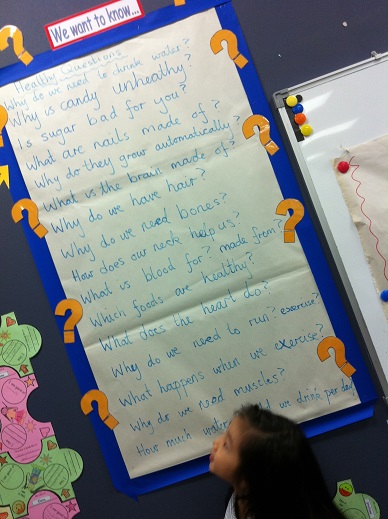 We want to know...
Healthy Questions
Why do we need to drink water?
Why is candy unhealthy?
Is sugar bad for you?
What are nails made of?
Why do they grow automatically?
What is the brain made of?
Why do we have hair?
Why do we need bones?
How does our neck help us?
What is blood for? made from?
Which foods are healthy?
What does the heart do?
Why do we need to run? exercise?
What happens when we exercise?
Why do we need muscles?
How much water we drink per day